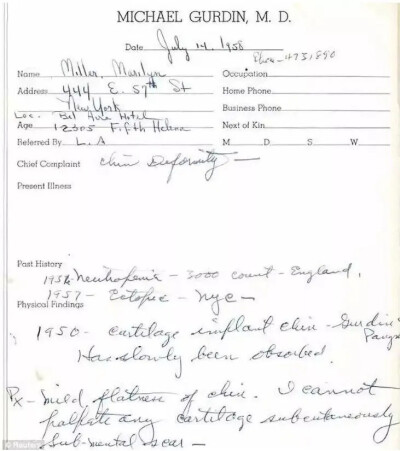 MICHAEL GURDIN, M. D.
Date July 14, 1958
Name Miller, Marilyn Occupation
Address 444 E. 57th St Home Phone
New York Business Phone
Loc. Bel Air Hotel
Age 12305 Fifth Helena Next of Kin
Referred By L. A M D S W
Chief Complaint chin Deformity —
Present Illness
Past History
Neutropenia - 3000 count - England.
1957 - Ectopic - NYC -
Physical Findings
1950 - cartilage implant chin - Gurdin
Has slowly been absorbed.
Px - mild flatness of chin. I cannot
palpate any cartilage subcutaneously
Sub-mental scar -